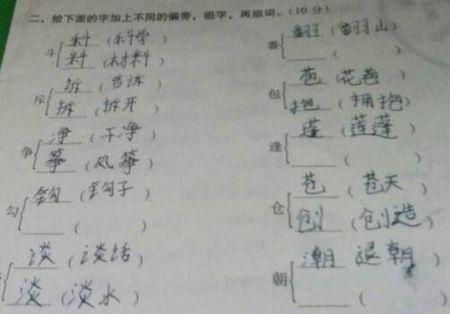 二、给下面的字加上不同的偏旁，组字，再组词。(10 分)
斗
科 (科学)
料 (材料)
斥
诉 (告诉)
拆 (拆开)
争
净 (干净)
筝 (风筝)
勾
钩 (钩子)
( )
谈 (谈话)
淡 (淡水)
番
翻 (翻山)
( )
包
苞 (花苞)
抱 (拥抱)
逢
蓬 (莲蓬)
( )
仓
苍 (苍天)
创 (创造)
朝
潮 退朝
(